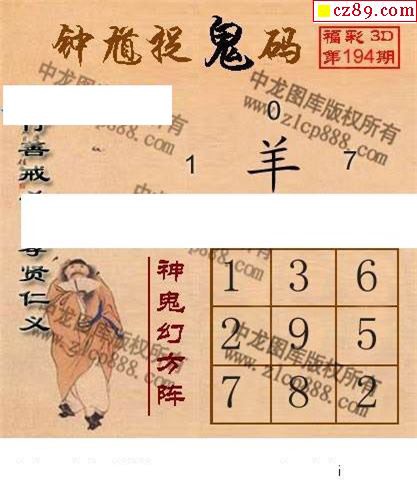 cz89.com
钟馗捉鬼码
福彩3D
第194期
中龙图库版权所有
www.zlcp888.com
0
1 羊 7
善戒
尊贤仁义
神鬼幻方阵
1 3 6
2 9 5
7 8 2
中龙图库版权所有
www.zlcp888.com
i